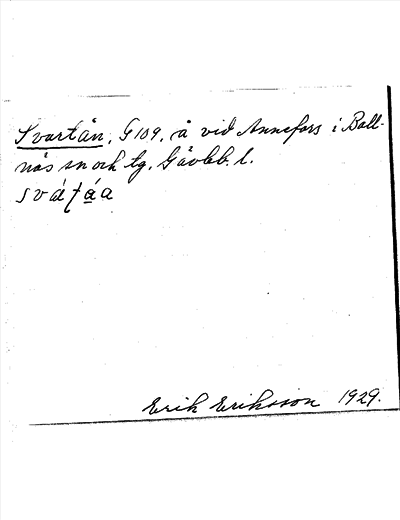 Svartån, G109, å vid Annefors i Boll-
näs sn och tg, Gävleb. l.
svátáa
Erik Eriksson 1929.